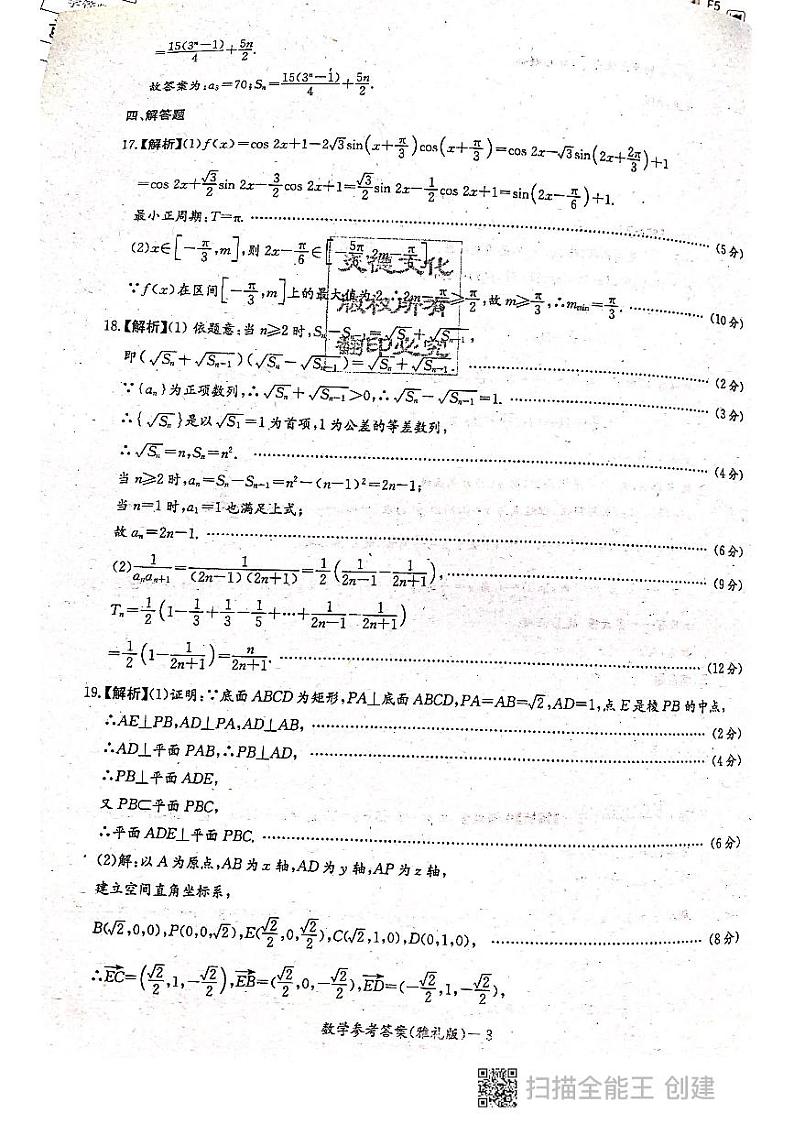 F5
=15(3ⁿ−1)/4+5n/2.
故答案为:a₃=70;Sₙ=15(3ⁿ−1)/4+5n/2.
四、解答题
17.【解析】(1)f(x)=cos 2x+1−2√3sin(x+π/3)cos(x+π/3)=cos 2x−√3sin(2x+2π/3)+1
=cos 2x+√3/2 sin 2x−3/2 cos 2x+1=√3/2 sin 2x−1/2 cos 2x+1=sin(2x−π/6)+1.
最小正周期:T=π. (5分)
(2)x∈[−π/3,m],则 2x−π/6∈[−5π/6,2m−π/6]
∵f(x)在区间[−π/3,m]上的最大值为2,∴2m−π/6⩾π/2,故 m⩾π/3,∴mₘᵢₙ=π/3. (10分)
炎德文化
版权所有
翻印必究
18.【解析】(1) 依题意:当 n⩾2 时,Sₙ−Sₙ₋₁=√Sₙ+√Sₙ₋₁,
即(√Sₙ+√Sₙ₋₁)(√Sₙ−√Sₙ₋₁)=√Sₙ+√Sₙ₋₁. (2分)
∵{aₙ}为正项数列,∴√Sₙ+√Sₙ₋₁>0,∴√Sₙ−√Sₙ₋₁=1. (3分)
∴{√Sₙ}是以√S₁=1为首项,1为公差的等差数列,
∴√Sₙ=n,Sₙ=n². (4分)
当 n⩾2 时,aₙ=Sₙ−Sₙ₋₁=n²−(n−1)²=2n−1;
当 n=1 时,a₁=1也满足上式;
故 aₙ=2n−1. (6分)
(2)1/(aₙaₙ₊₁)=1/((2n−1)(2n+1))=1/2(1/(2n−1)−1/(2n+1)), (9分)
Tₙ=1/2(1−1/3+1/3−1/5+⋯+1/(2n−1)−1/(2n+1))
=1/2(1−1/(2n+1))=n/(2n+1). (12分)
19.【解析】(1)证明:∵底面 ABCD 为矩形,PA⊥底面 ABCD,PA=AB=√2,AD=1,点 E 是棱 PB 的中点,
∴AE⊥PB,AD⊥PA,AD⊥AB, (2分)
∴AD⊥平面 PAB,∴PB⊥AD, (4分)
∴PB⊥平面 ADE,
又 PB⊂平面 PBC,
∴平面 ADE⊥平面 PBC. (6分)
(2)解:以 A 为原点,AB 为 x 轴,AD 为 y 轴,AP 为 z 轴,
建立空间直角坐标系,
B(√2,0,0),P(0,0,√2),E(√2/2,0,√2/2),C(√2,1,0),D(0,1,0), (8分)
∴EC→=(√2/2,1,−√2/2),EB→=(√2/2,0,−√2/2),ED→=(−√2/2,1,−√2/2),
数学参考答案(雅礼版)−3
扫描全能王 创建